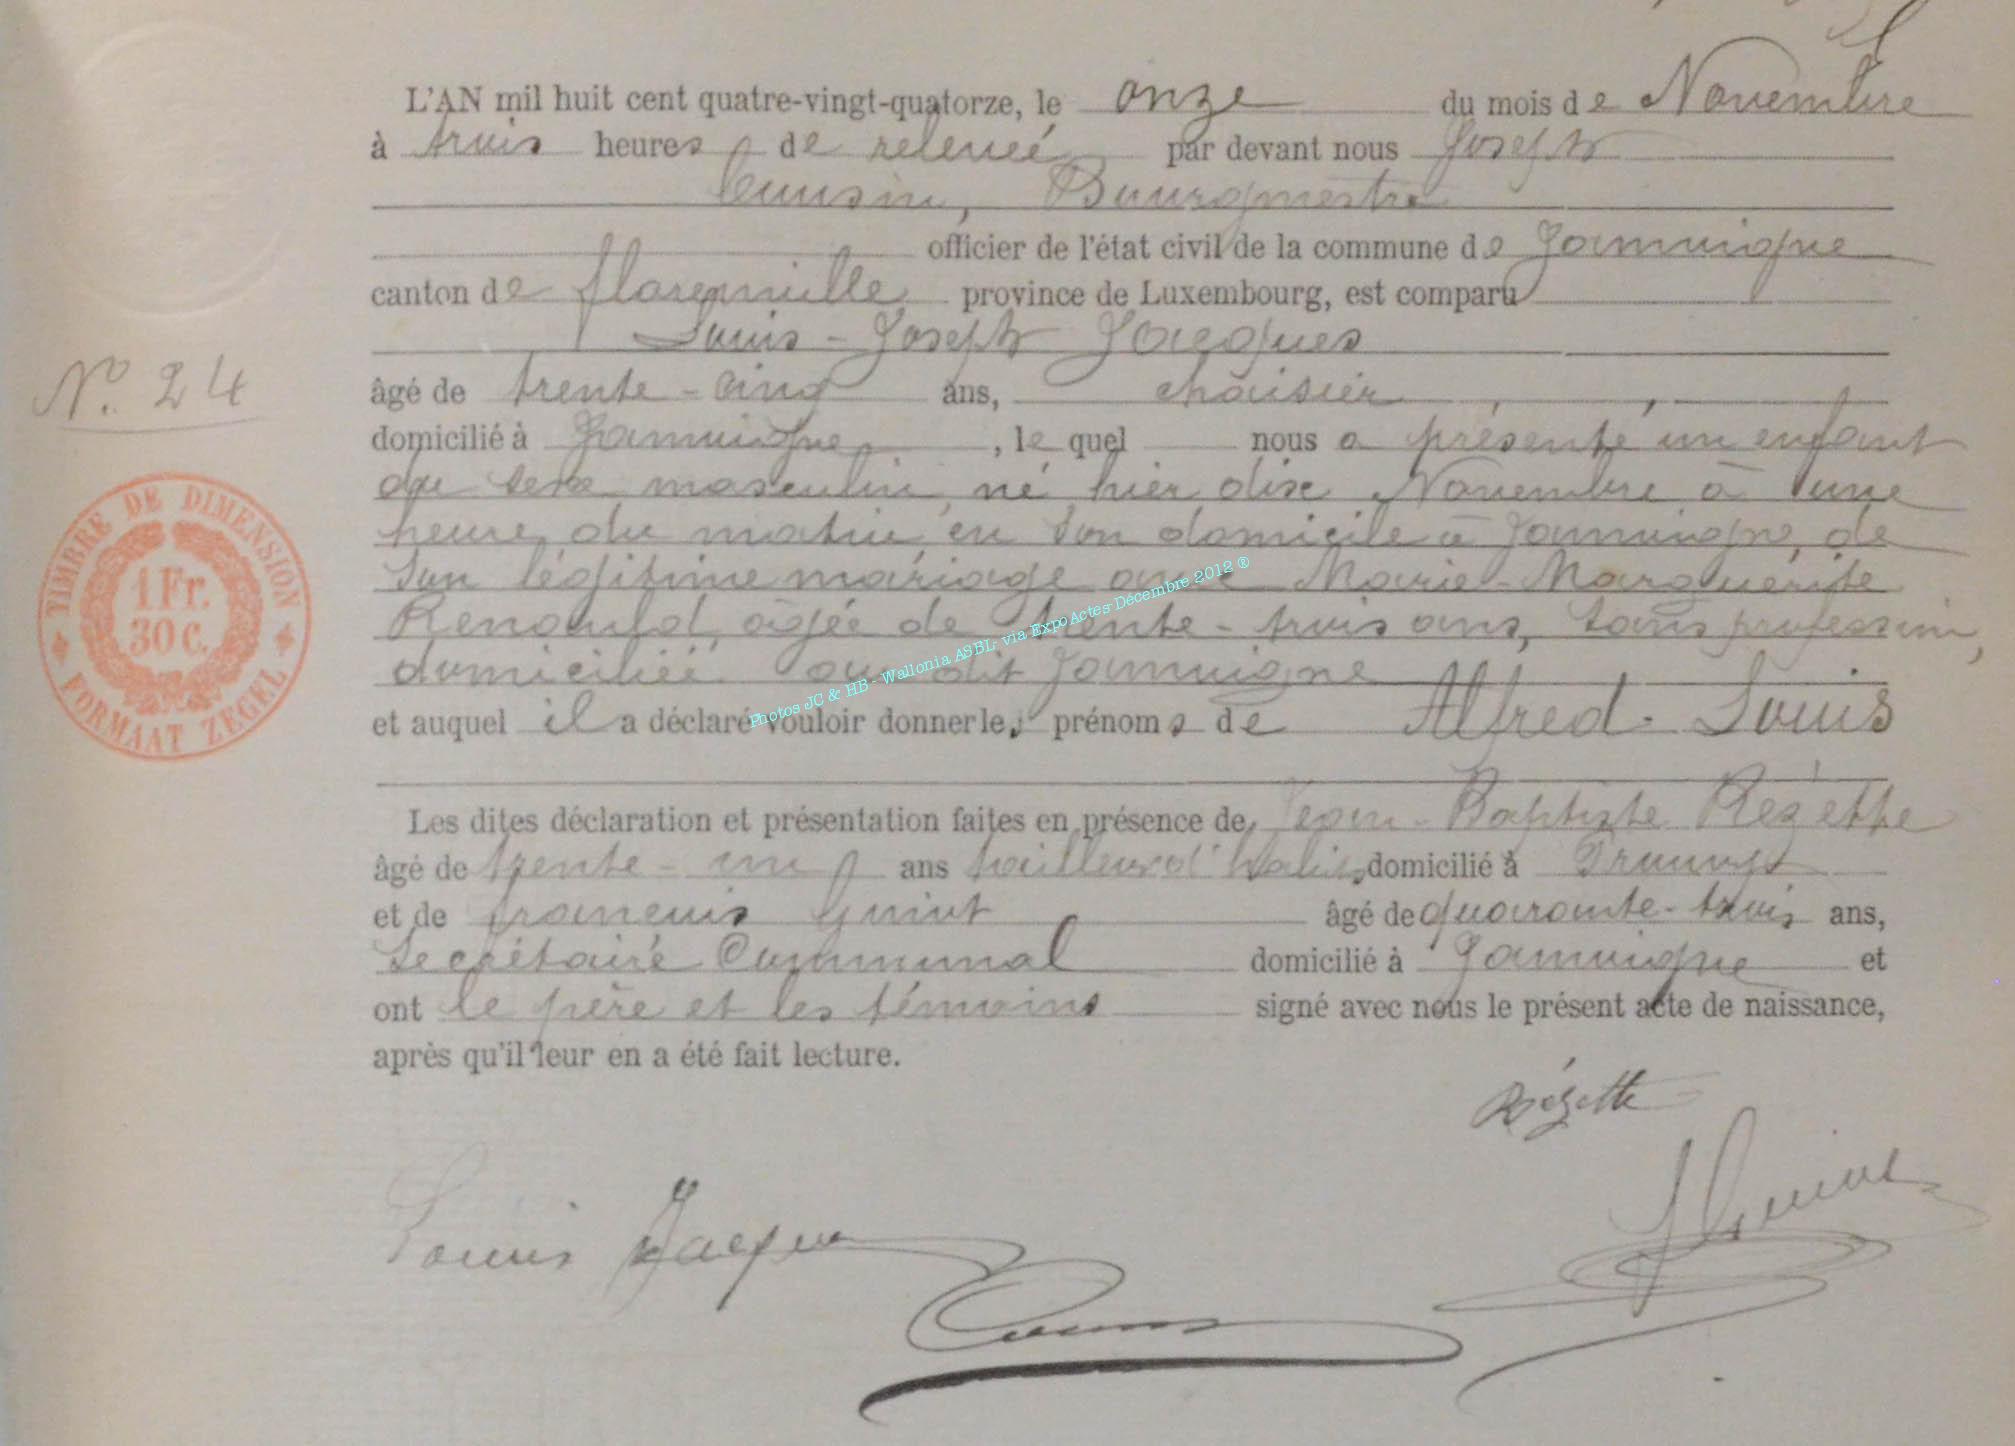 L'AN mil huit cent quatre-vingt-quatorze, le onze du mois de Novembre
à trois heures de relevée par devant nous Joseph
Cousin, Bourgmestre
officier de l'état civil de la commune de Jamoigne
canton de florenville province de Luxembourg, est comparu
Louis-Joseph Jacques
N° 24
âgé de trente-cinq ans, chaisier,
domicilié à Jamoigne, lequel nous a présenté un enfant
du sexe masculin, né hier dix Novembre à une
heure du matin en son domicile à Jamoigne, de
son légitime mariage avec Marie-Marguerite
Renauld, agée de trente-trois ans, sans profession,
domiciliée au dit Jamoigne
et auquel il a déclaré vouloir donner les prénoms de Alfred-Louis
Les dites déclaration et présentation faites en présence de Jean-Baptiste Rézette
âgé de trente-un ans tailleur d'habits domicilié à
et de francois Guiot âgé de quarante-trois ans,
Secrétaire Communal domicilié à Jamoigne et
ont le père et les témoins signé avec nous le présent acte de naissance,
après qu'il leur en a été fait lecture.
Rézette
Louis Jacques
Guiot
Cousin
TIMBRE DE DIMENSION
1 Fr.
30 C.
FORMAAT ZEGEL
Photos JC & HB - Wallonia ASBL- via ExpoActes-Décembre 2012 ®